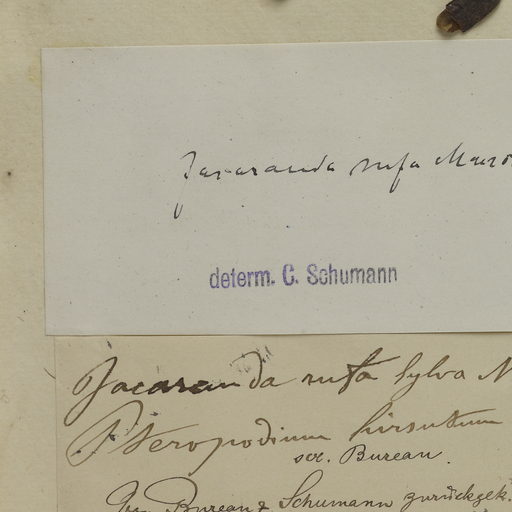 Jacaranda rufa Manso
determ. C. Schumann
Jacaranda rufa Sylva M
Pteropodium hirsutum
sec. Bureau.
Von Bureau & Schumann zurückgek.